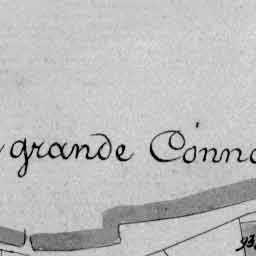 grande Conno
93